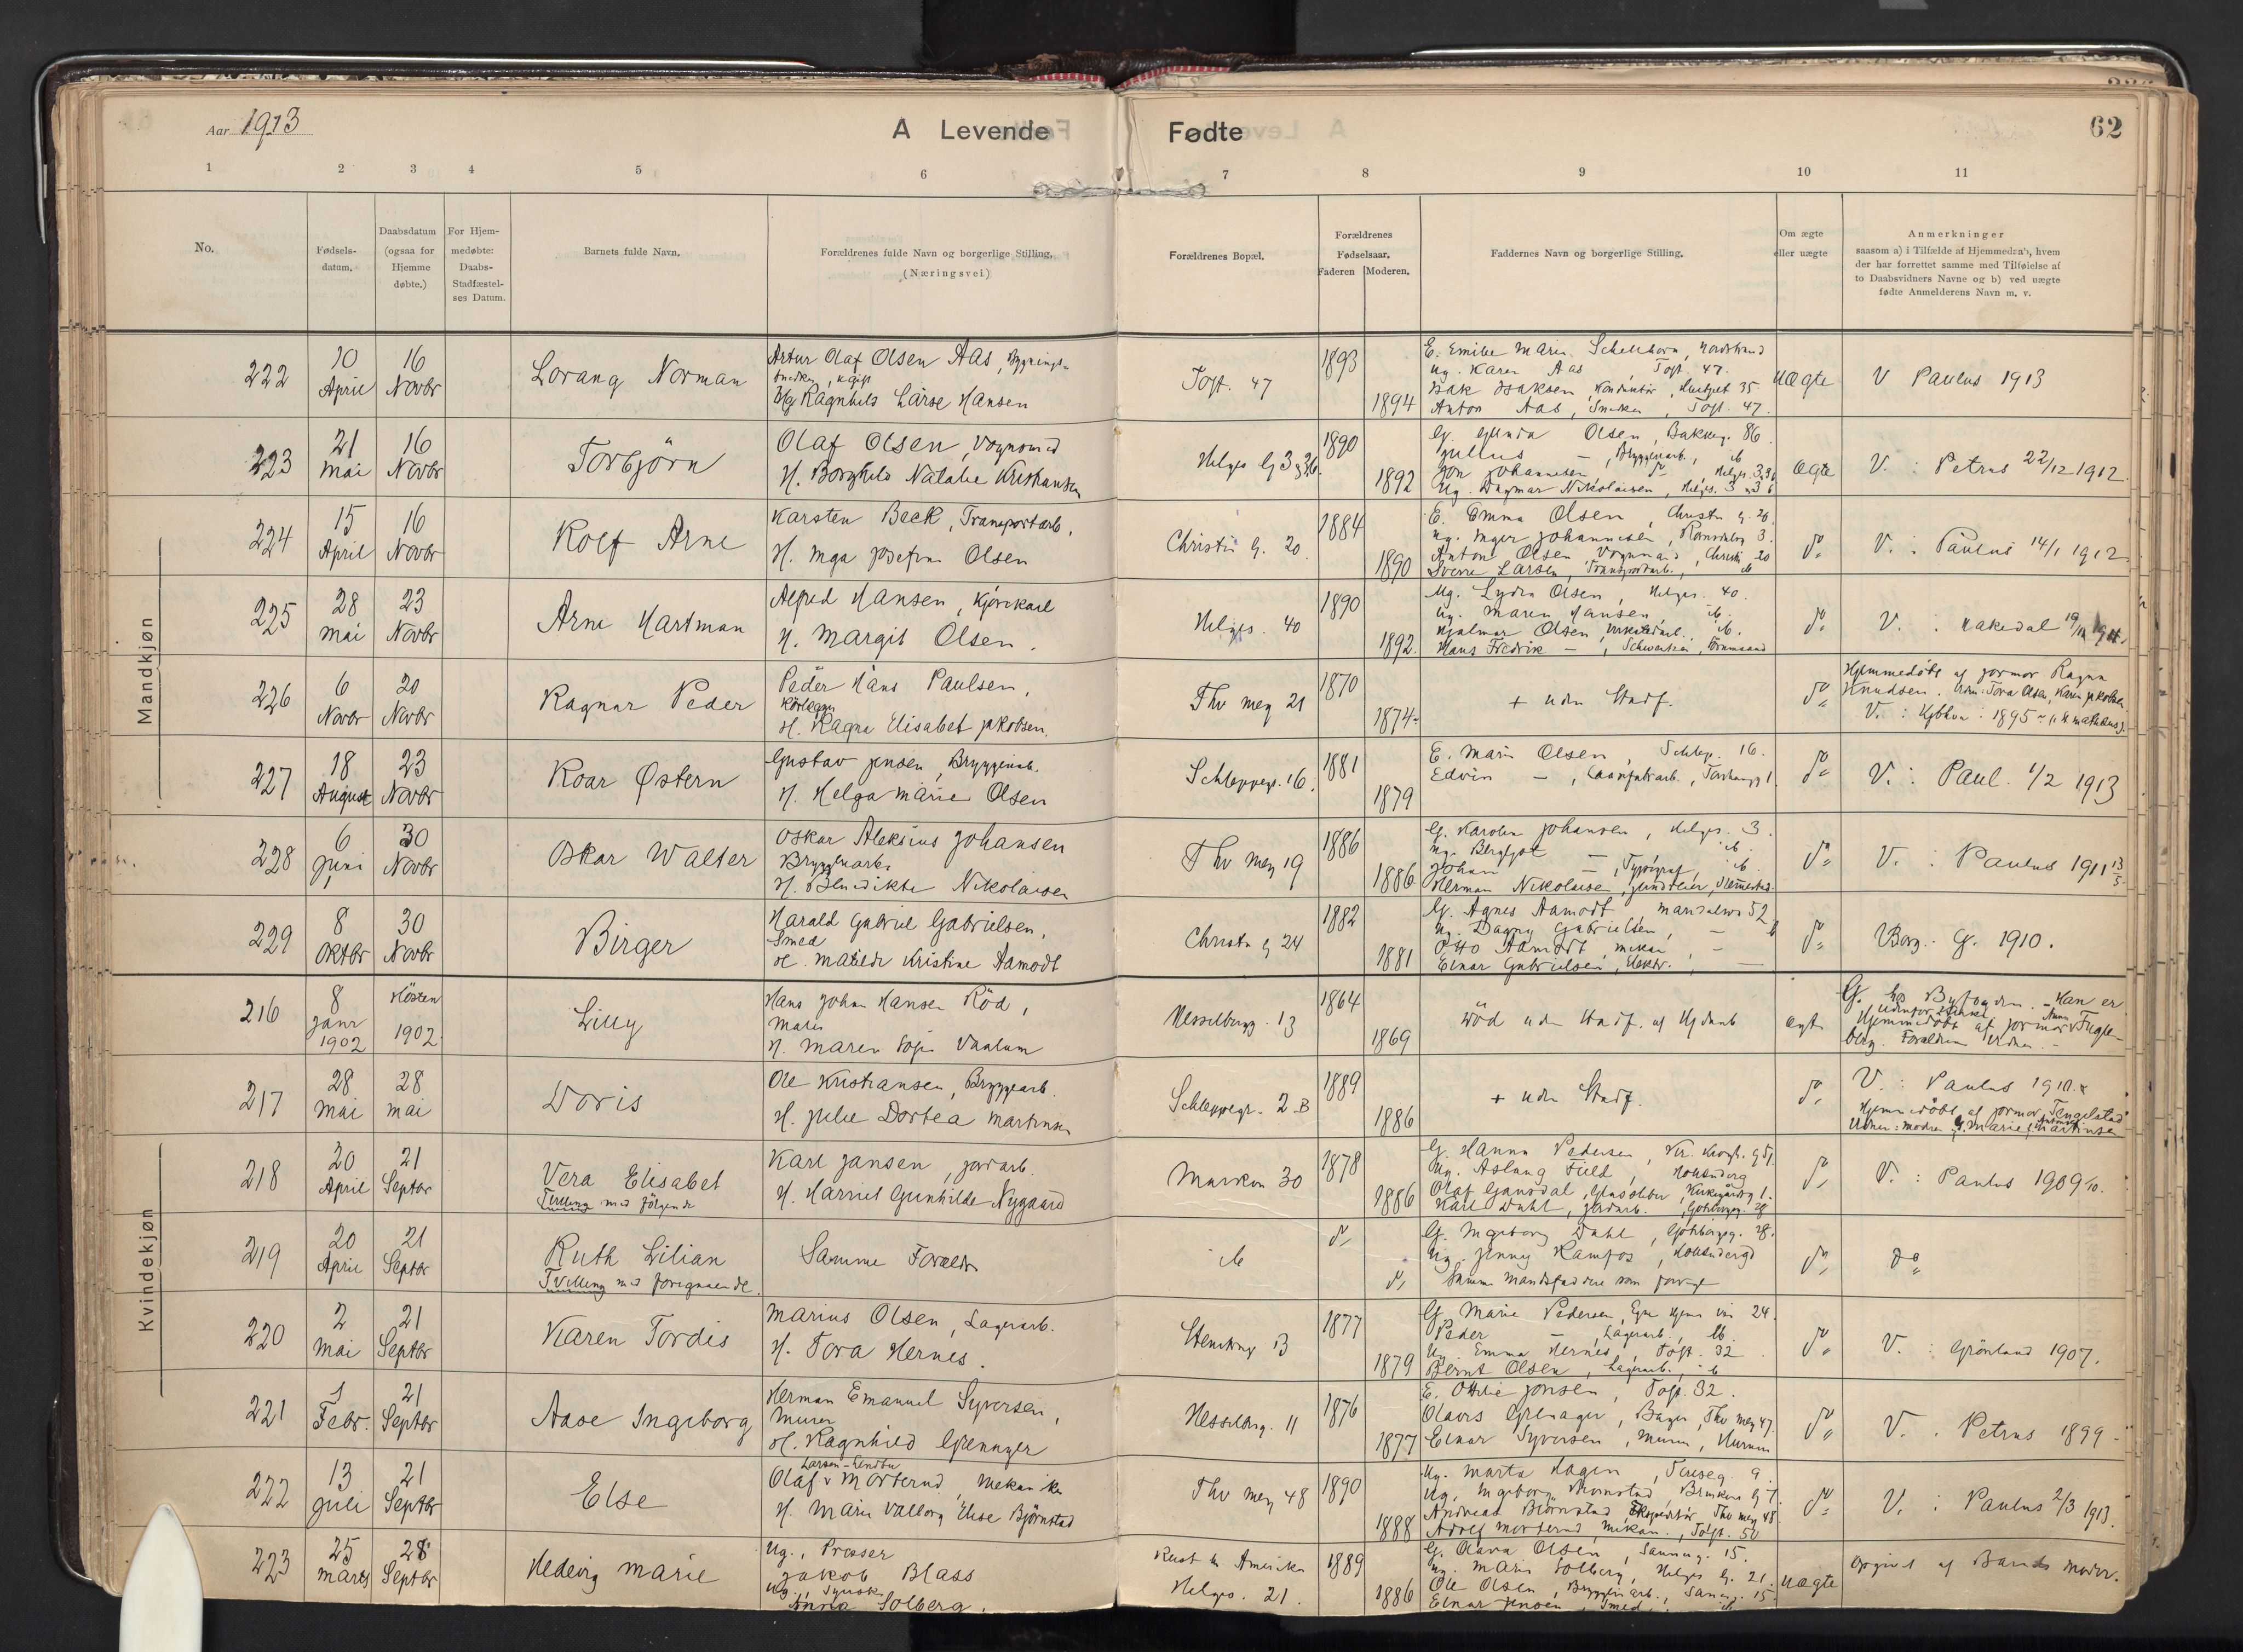 Aar 1913
A Levende Fødte
62
1 2 3 4 5 6 7 8 9 10 11
No.
Fødsels-
datum.
Daabsdatum
(ogsaa for
Hjemme
døbte.)
For Hjem-
medøbte:
Daabs-
Stadfæstel-
ses Datum.
Barnets fulde Navn.
Forældrenes fulde Navn og borgerlige Stilling.
(Næringsvei)
Forældrenes Bopæl.
Forældrenes
Fødselsaar.
Faderen Moderen.
Faddernes Navn og borgerlige Stilling.
Om ægte
eller uægte
Anmerkninger
saasom a) i Tilfælde af Hjemmedaa's, hvem
der har forrettet samme med Tilføielse af
to Daabsvidners Navne og b) ved uægte
fødte Anmelderens Navn m. v.
Mandkjøn
222
10
April
16
Novbr
Lorang Norman
Artur Olaf Olsen Aas, Bygnings-
snedker, ugift
Ug Ragnhild Larse Hansen
Toft. 47
1893
1894
E. Emilie Maren Schelhorn, Nordstrand
Ug. Karen Aas, Toft. 47.
Isak Isaksen, Konduktør, 35
Anton Aas, Snedker, Toft. 47.
Uægte
V Paulus 1913
223
21
Mai
16
Novbr
Torbjörn
Olaf Olsen, Vognmand
H. Borghild Natalie Kristiansen
Helges G 3 36.
1890
1892
G. Olsen, Bakkeg. 86
Julius — , Bryggeriarb., ib
Johannesen do Helges. 3 36
Ug. Dagmar Nikolaisen, Helges. 3 36
Ægte
V. : Petrus 22/12 1912.
224
15
April
16
Novbr
Rolf Arne
Karsten Beck, Transportarb.
H. Inga Josefine Olsen
Christi G. 20.
1884
1890
E. Emma Olsen, Christi G. 20
Ug. Inger Johannesen, 3.
Anton Olsen Vognmand, Christi 20
Sverre Larsen, Transportarb., ib
do
V. : Paulus 14/1 1912
225
28
Mai
23
Novbr
Arne Hartman
Alfred Hansen, Kjørekarl
H. Margit Olsen.
Helges. 40
1890
1892.
Ug. Lydia Olsen, Helges. 40.
Ug. Maren Hansen ib.
Hjalmar Olsen, ib.
Hans Fredrik — ,
do
V. : Hakedal 19/ 1911.
226
6
Novbr
20
Novbr
Ragnar Peder
Peder Hans Paulsen,
H. Ragna Elisabet Jakobsen.
Thv mey 21
1870
1874
+ uden Stadf.
do
Hjemmedöbt af jormor Ragna
Knudsen. Vidn: Tora Olsen, Karen Jakobsen
V. : Kjbhvn: 1895
227
18
August
23
Novbr
Roar Østern
Gustav Jensen, Bryggeriarb.
H. Helga Marie Olsen
Schleppegr. 16.
1881
1879
E. Marie Olsen, Schlep. 16.
Edvin — ,
do
V. : Paul. 1/2 1913
228
6
Juni
30
Novbr
Oskar Walter
Oskar Aleksius Johansen
Bryggeriarb.
H. Benedikte Nikolaisen
Thv mey 19
1886
1886
G. Karoline Johansen, Helges. 3.
Ug. Bergljot — ib.
Johan — , Typograf, ib.
Herman Nikolaisen,
do
V. : Paulus 1911 13/5.
229
8
Oktbr
30
Novbr
Birger
Harald Gabriel Gabrielsen,
Smed
H. Matilde Kristine Aamodt
Christi G 24
1882
1881
G. Agnes Aamodt, Maridalsv 52
Ug. Dagny Gabrielsen, — ib
Otto Aamodt, Mekan. —
Einar Gabrielsen, Elektr. —
do
Borg. G. 1910.
Kvindekjøn
216
8
Janr
1902
Hösten
1902
Lilly
Hans Johan Hansen Röd,
Maler
H. Maren Sofie Vaalum
Hesselbergg. 13
1864
1869
död uden Stadf. af Hjdaab
ægt
G. hos Byfogden. - Han er
udenfor Statsk.
Hjemmedöbt af jormor Anna Fugle-
berg. Forældrene Vidner.
217
28
Mai
28
Mai
Doris
Ole Kristiansen, Bryggearb.
H. Julie Dortea Martinsen
Schleppegr. 2 B
1889
1886
+ uden Stadf.
do
V. : Paulus 1910.
Hjemmedöbt af jormor Tengelstad
Vidner: Modren G. Marie Martinsen
218
20
April
21
Septbr
Vera Elisabet
Tvilling med följende
Karl Jansen, Jordarb.
H. Harriet Gunhilde Nygaard
Markvn 30
1878
1886
G. Hanna Pedersen,
Ug. Aslaug Field,
Olaf Gansdal, Glassliber, Kirkegaardsg 1.
Karl Dahl, Jordarb., Göteborgg. 28
do
V. : Paulus 1909
219
20
April
21
Septbr
Ruth Lilian
Tvilling med foregaaende.
Samme Forældre
ib
do
do
G. Ingeborg Dahl, Göteborgg. 28.
Ug. Jenny Ramfos,
Samme Mandsfaddere som forrige
do
do
220
2
Mai
21
Septbr
Karen Tordis
Marius Olsen, Lagerarb.
H. Tora Hernes.
Stenstrup 13
1877
1879
G. Marie Pedersen, Egne Hjem vei 24.
Peder — , Lagerarb., ib.
Ug. Emma Hernes, Toft. 32
Bernt Olsen, Lagerarb., ib
do
V. : Grönland 1907.
221
1
Febr.
21
Septbr
Aase Ingeborg
Herman Emanuel Syversen,
Murer
H. Ragnhild Grennager
Hesselbergg. 11
1876
1877
E. Ottilie Jonsen, Toft. 32.
Olavis Grenager, Bager, Thv mey 47.
Einar Syversen, Murer, Hurum
do
V. : Petrus 1899 -
222
13
Juli
21
Septbr
Else
Larsen-Lendbu
Olaf v Morterud, Mekaniker
H. Marie Valborg Elise Björnstad
Thv mey 48
1890
1888
Ug. Marta Hagen, 9
Ug. Ingeborg Björnstad,
Andreas Björnstad, Ekspeditör, Thv mey 48
Adolf Morterud, Mekan., Toft. 50
do
V. : Paulus 2/3 1913.
223
25
Marts
28
Septbr
Hedvig Marie
Ug., Presser
Jakob Blass
Ug., Syersk
Anna Solberg.
Reist til Amerika
Helges. 21.
1889
1886
G. Olava Olsen, Sannerg. 15.
Ug. Marie Solberg, Helges G. 21.
Ole Olsen, Bryggeriarb., Sannerg. 15.
Einar Jensen, Smed, ib
Uægte
Opgivet af Barnets moder.